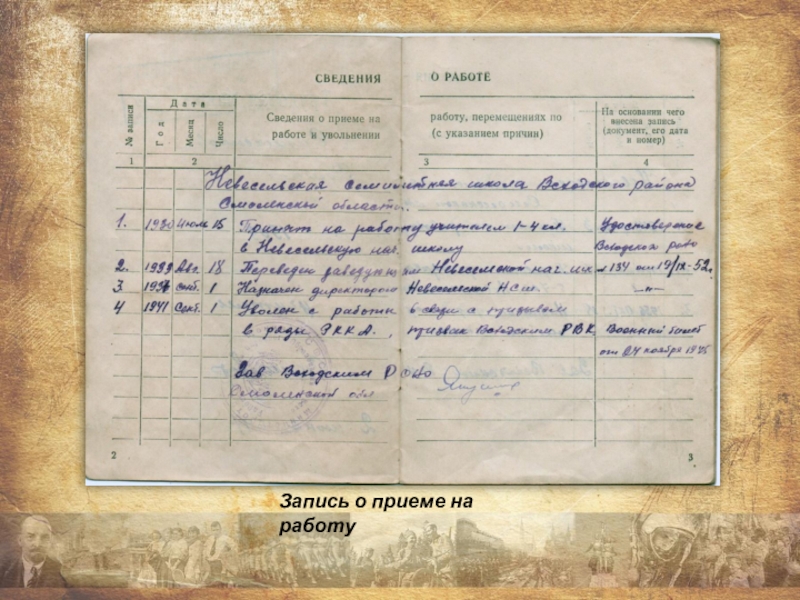 СВЕДЕНИЯ О РАБОТЕ
№ записи
Дата
Год
Месяц
Число
Сведения о приеме на работу, перемещениях по
работе и увольнении (с указанием причин)
На основании чего
внесена запись
(документ, его дата
и номер)
1 2 3 4
Невесельская школа Всходского района
Смоленской области.
1. 1930 Июль 15 Принят на работу учителем 1-4 кл. Удостоверение
в Невесельскую нач. школу Всходск роно
2. Авг 18 Переведен Невесельской нач. шк 134 от 19/IX-52г.
3 сент. 1 Назначен директором Невесельской НСШ —"—
4 1941 Сент. 1 Уволен с работы в связи с призывом
в ряды РККА., призван Всходским РВК. Военный билет
от 24 ноября
Зав Всходским РОНО
Смоленской обл
2 3
Запись о приеме на
работу